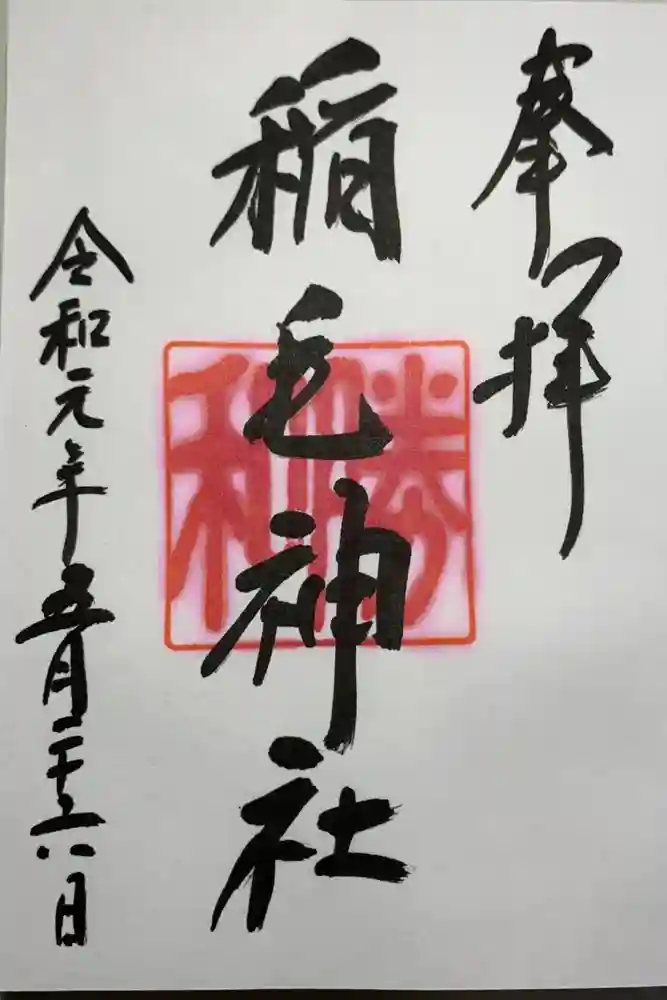 奉拝
稲毛神社
勝利
令和元年五月二十六日